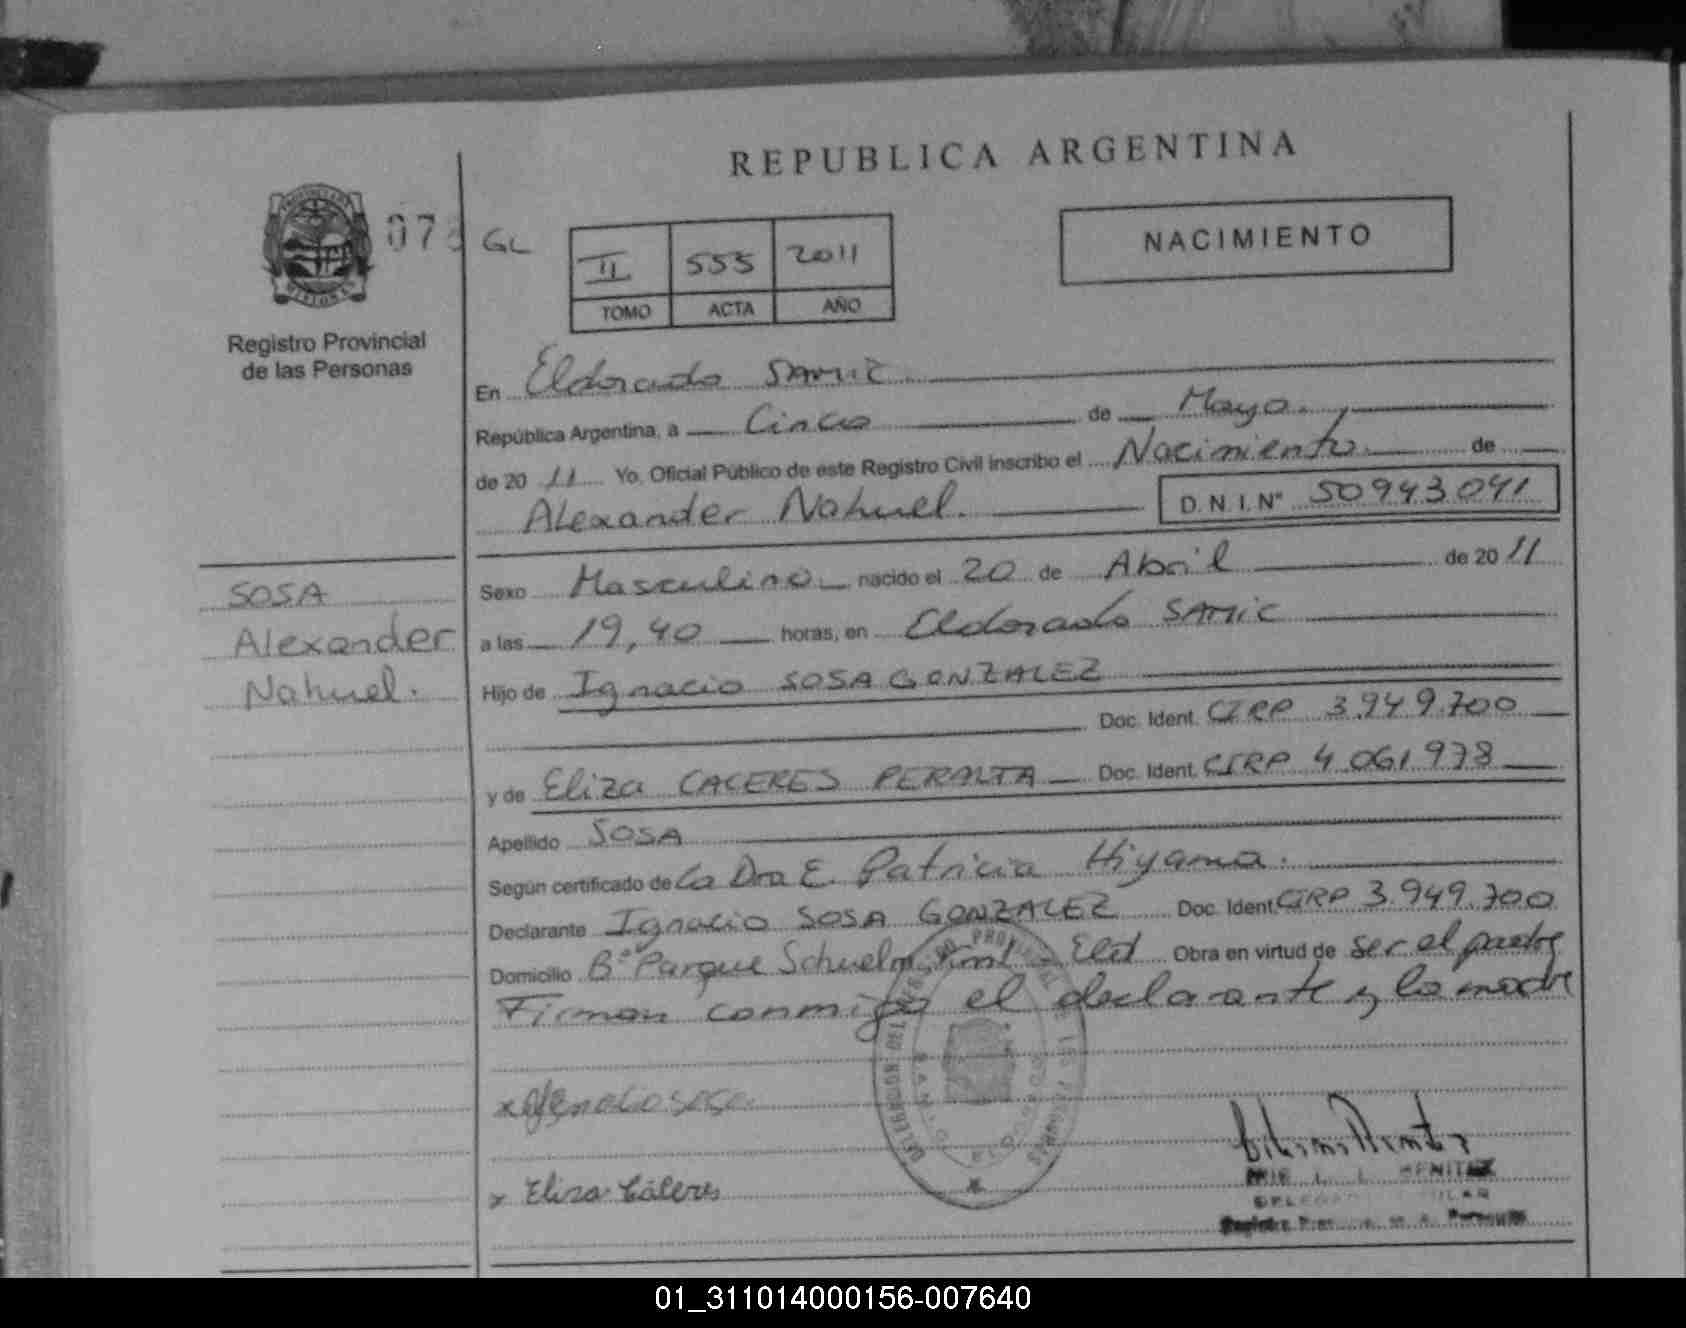 REPUBLICA ARGENTINA
NACIMIENTO
GL
II 555 2011
TOMO ACTA AÑO
Registro Provincial
de las Personas
En Eldorado SAMIC
República Argentina, a Cinco de Mayo.
de 20 11 Yo, Oficial Público de este Registro Civil inscribo el Nacimiento de
Alexander Nahuel. D.N.I. Nº 50943041
SOSA
Alexander
Nahuel.
Sexo Masculino nacido el 20 de Abril de 20 11
a las 19,40 horas, en Eldorado SAMIC
Hijo de Ignacio SOSA GONZALEZ
Doc. Ident. CIRP 3.949.700
y de Eliza CACERES PERALTA Doc. Ident. CIRP 4 061 978
Apellido SOSA
Según certificado de La Dra E. Patricia Hiyama.
Declarante Ignacio SOSA GONZALEZ Doc. Ident. CIRP 3.949.700
Domicilio Bº Parque Eld Obra en virtud de ser el padre
Firman conmigo el declarante y la madre
x Ignacio sosa
x Eliza Cáceres
BENITEZ
01_311014000156-007640